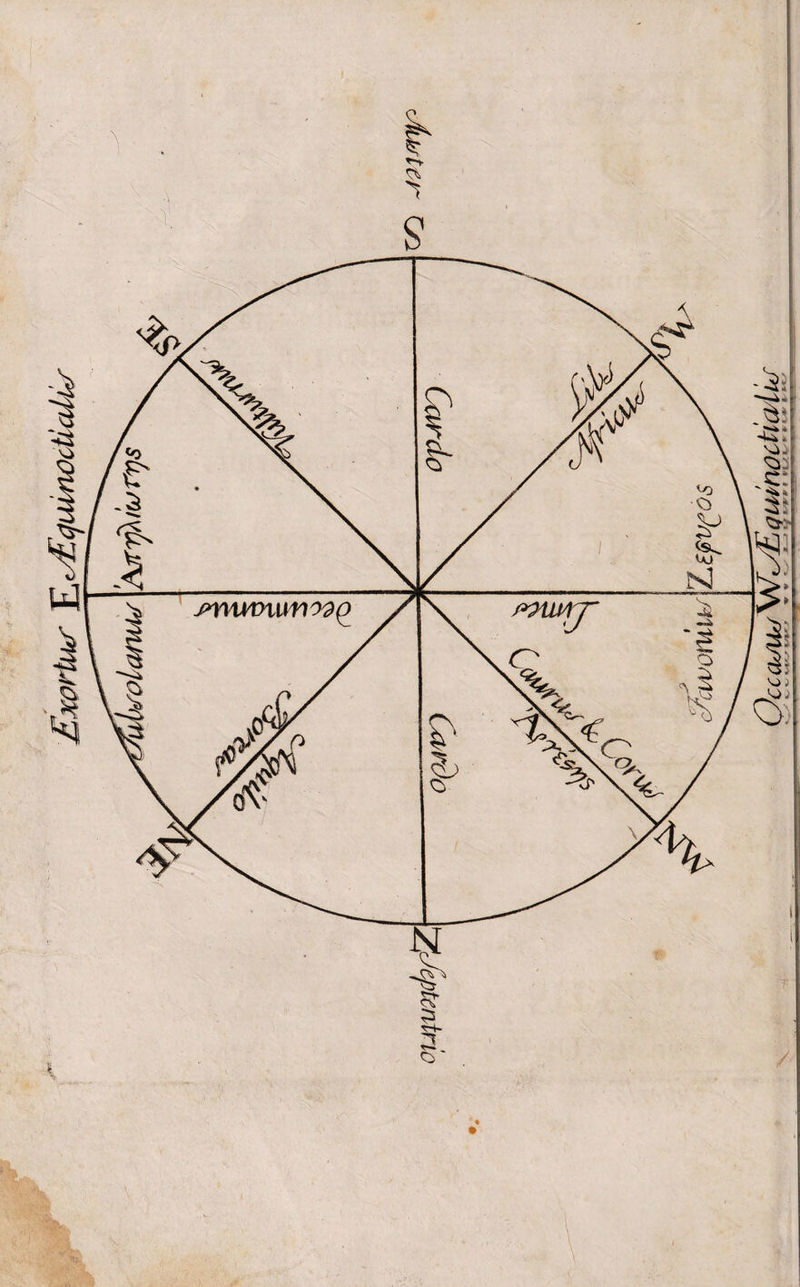 Auster
S
SE
SW
Vulturnus
Cardo
Libs
Africus
Exortus E Æquinoctialis
Ἀπηλιώτης
Subsolanus
Ζεφυρος
Favonius
Occasus W Æquinoctialis
Limes
Decumanus
Boreas
Aquilo
Cardo
Caurus & Corus
Ἀργέϛης
NE
NW
N
Septentrio